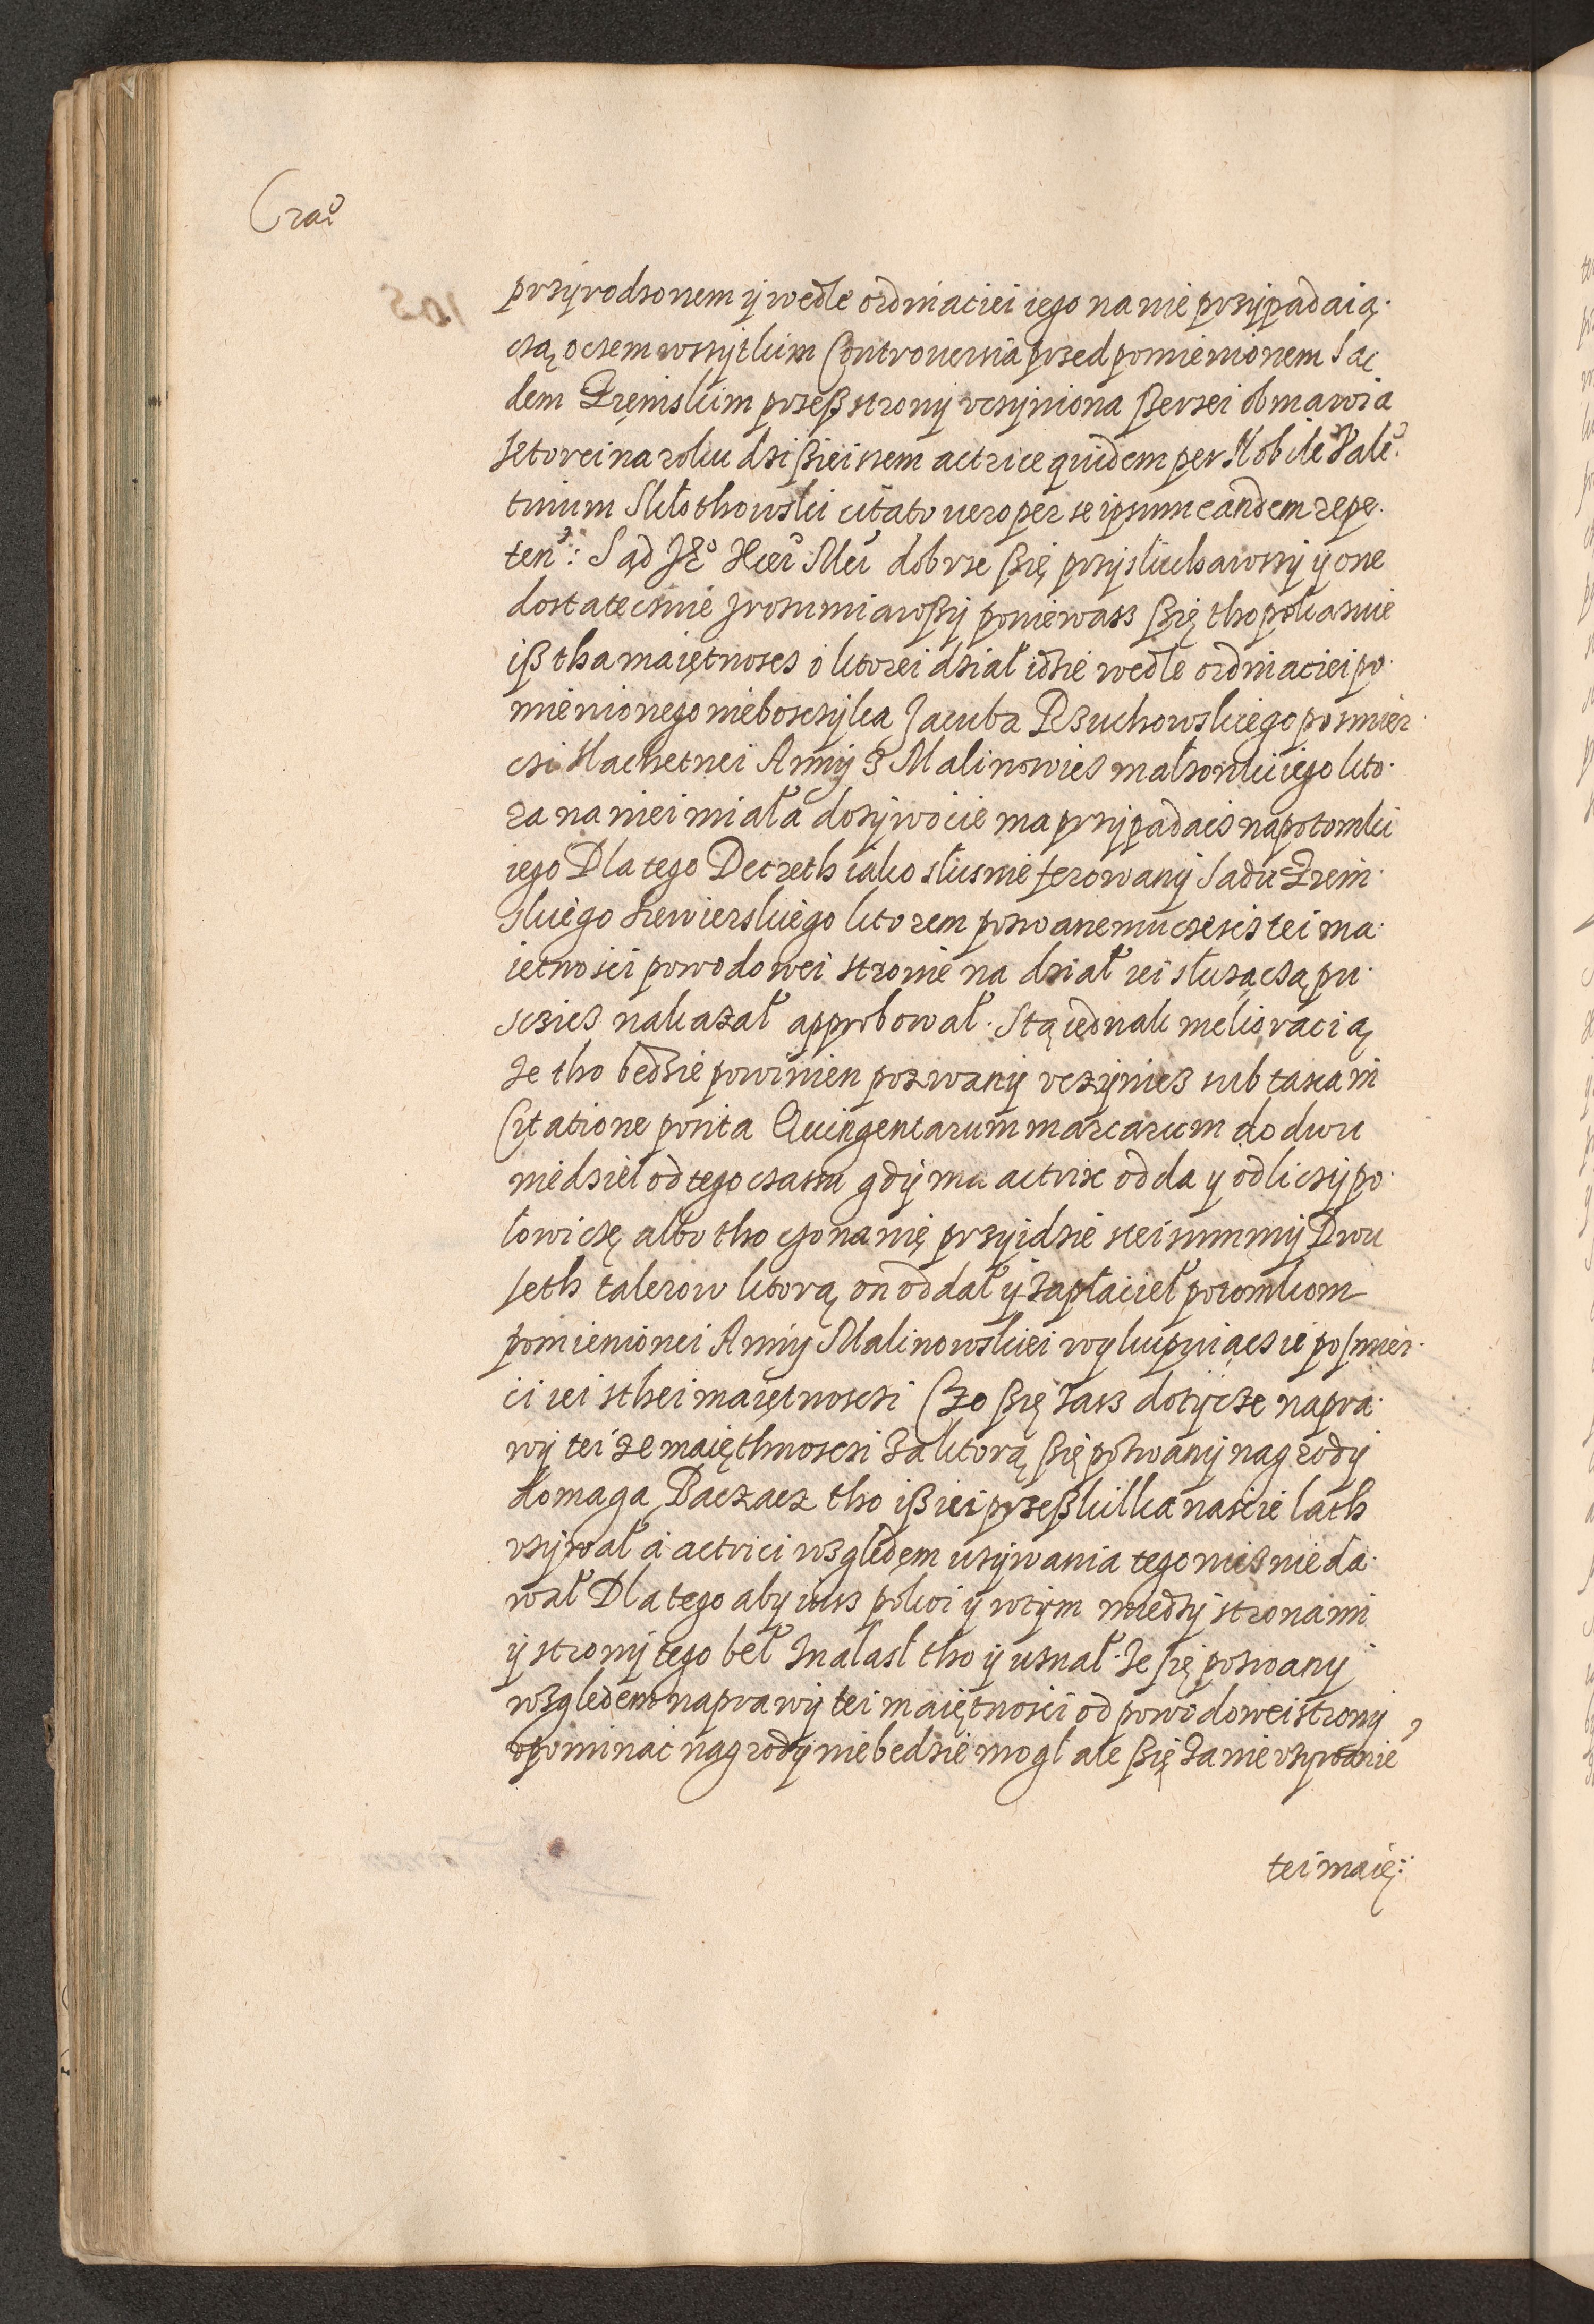 Cra:
przyrodzonem y wedle ordinaciei iego na nie przypadaią.
czą, o czem wszytkim Controuersia przed pomienionem Sąc
dem Zięmskim przeß strony vczyniona ßerzei obmawia
Ktorei na roku dzißieiszem actrice quidem per Nobile Vale:
tinum Skłothowski citato uero per se ipsum eandem repe.
ten: Sąd JE° Kcei Mci dobrze ßię przysluchawszy y one
dostatecznie zrozumiawßy poniewasz ßię tho pokazuie
iß tha maiętnoscz o ktorei dział idzie wedle ordinaciei po.
mienionego nieboszczyka Jacuba Rzuchowskiego po smier.
czi slachetnei Anny z Malinowicz małzonki iego kto.
ra na niei miała dozywocie ma przypadacz na potomki
iego Dla tego Decreth iako słusnie ferowany Sadu Ziem.
skiego Siewierskiego ktorem pozwanemu czescz tei ma.
ietnosci powodowei stronie na dział iei słuzączą pu.
sczicz nakazał approbował. Stą iednak melioracią
ze tho bedzie powinien pozwany vczynicz sub taxa in
Citatione posita Quingentarum marcarum do dwu
niedziel od tego czassu gdy mu actrix odda y odliczy po.
łowiczę albo tho czo na nię przyidzie stei summy Dwu
seth talerow ktorą on oddał y zapłacieł potomkom
pomienionei Anny Malinowskiei wykupuiącz ie po smier.
ci iei sthei maiętnosczi Czo ßię zasz dotycze napra.
wy tei ze maięthnosczi za ktorą ßię pozwany nagrody
domaga, Baczacz tho iß iei przeß kilka nascie lath
vzywał a actrici względem uzywania tego nicz nie da.
wał Dla tego aby iusz pokoi y wtym miedzy stronami
y strony tego beł Znalasł tho y uznał. Ze się pozwany
względem naprawy tei maiętnosci od powodowei strony
vpominac nagrody nie bedzie mogł ale ßię za nie vzywanie
tei maię: